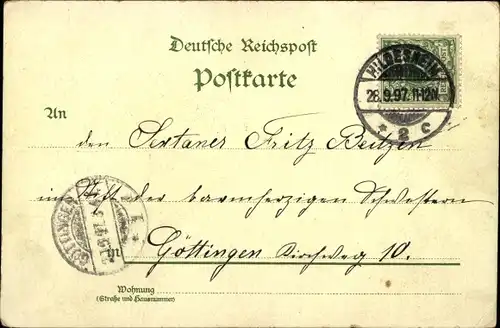 Deutsche Reichspost
Postkarte
HILDESHEIM
28.9.97. 11-12N
* 2 c
An
den Sextaner Fritz Beitzen
im Stift der barmherzigen Schwestern
in Göttingen Kirchweg 10.
GÖTTINGEN
Wohnung
(Straße und Hausnummer)